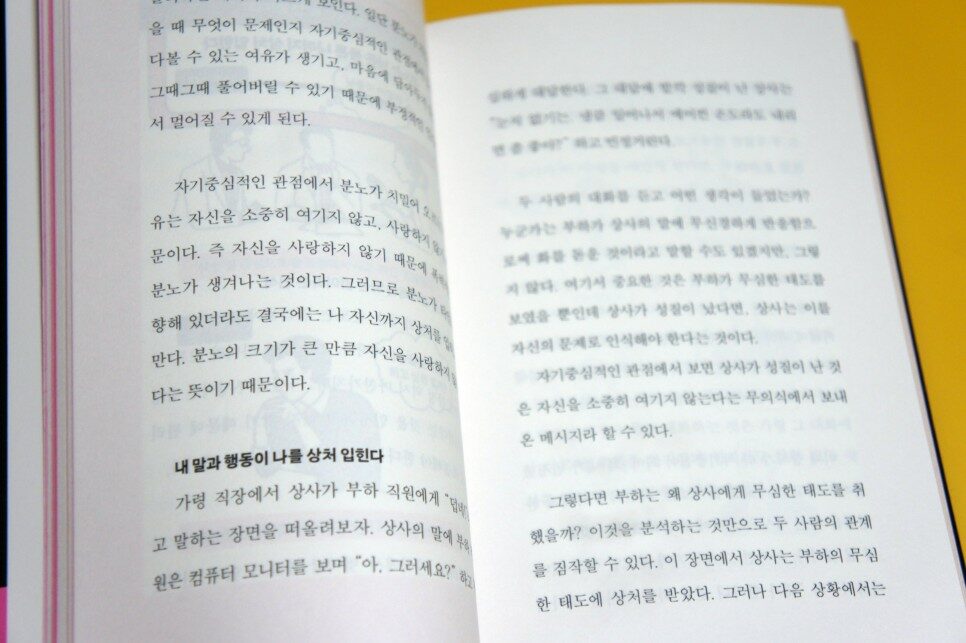 보인다. 일단 분노가
을 때 무엇이 문제인지 자기중심적인
다볼 수 있는 여유가 생기고, 마음에
그때그때 풀어버릴 수 있기 때문에 부정적인
서 멀어질 수 있게 된다.
자기중심적인 관점에서 분노가 치밀어
유는 자신을 소중히 여기지 않고, 사랑하지
문이다. 즉 자신을 사랑하지 않기 때문에
분노가 생겨나는 것이다. 그러므로 분노가
향해 있더라도 결국에는 나 자신까지 상처를
만다. 분노의 크기가 큰 만큼 자신을 사랑하지
다는 뜻이기 때문이다.
내 말과 행동이 나를 상처 입힌다
가령 직장에서 상사가 부하 직원에게
고 말하는 장면을 떠올려보자. 상사의 말에
원은 컴퓨터 모니터를 보며 “아, 그러세요?” 하고
대답한다. 그 대답에 발끈 성질이 난 상사는
“눈치 없기는. 냉큼 일어나서 에어컨 온도라도 내리
면 좀 좋아?” 하고 빈정거린다.
두 사람의 대화를 듣고 어떤 생각이 들었는가?
누군가는 부하가 상사의 말에 무신경하게 반응함으
로써 화를 돋운 것이라고 말할 수도 있겠지만, 그렇
지 않다. 여기서 중요한 것은 부하가 무심한 태도를
보였을 뿐인데 상사가 성질이 났다면, 상사는 이를
자신의 문제로 인식해야 한다는 것이다.
자기중심적인 관점에서 보면 상사가 성질이 난 것
은 자신을 소중히 여기지 않는다는 무의식에서 보내
온 메시지라 할 수 있다.
그렇다면 부하는 왜 상사에게 무심한 태도를 취
했을까? 이것을 분석하는 것만으로 두 사람의 관계
를 짐작할 수 있다. 이 장면에서 상사는 부하의 무심
한 태도에 상처를 받았다. 그러나 다음 상황에서는